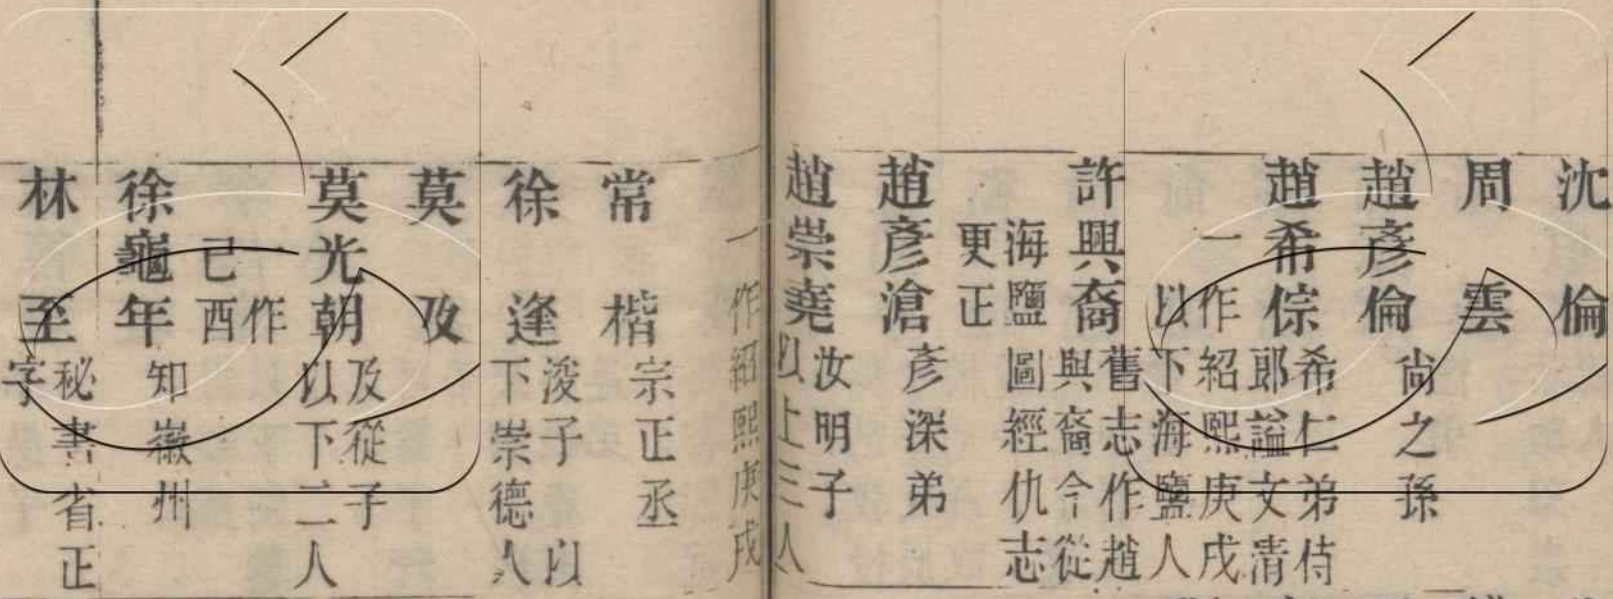 沈倫
周雲
趙彥倫尚之孫
趙希倧希仁弟侍
郎謚文清
一作紹熙庚戌
以下海鹽人
許興裔舊志作趙
與裔今從
海鹽圖經仇志
更正
趙彥滄彥深弟
趙崇堯汝明子
以上三人
一作紹熙庚戌
常楷宗正丞
徐逢浚子以
下崇德人
莫及
莫光朝及從子
以下二人
一作
己酉
徐龜年知徽州
林至秘書省正
字